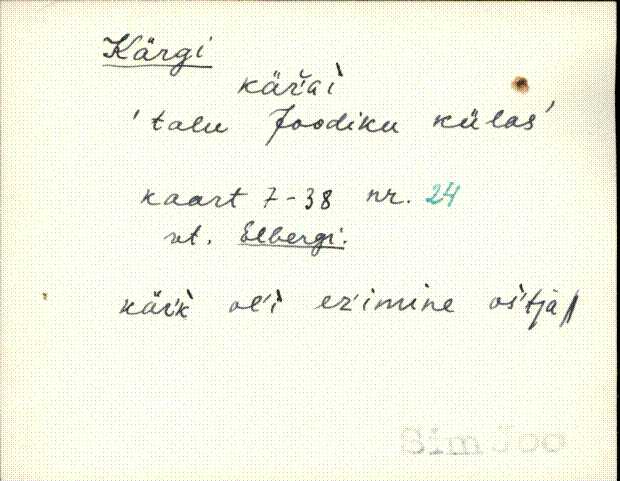 Kärgi
'talu Joodiku külas'
kaart 7-38 nr. 24
vt. Elbergi.
kärk oĺi ez'imine ostja //
Sim Joo